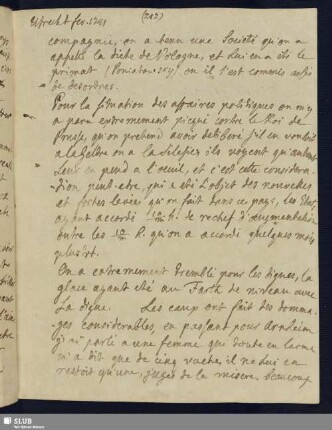 Utrecht fev. 1741 (212)
compagnie, on a tenu une Société qu'on a
appellé la diete de Pologne, et lui en a été le
primat (Poniatow: 259) ou il s'est commis assés
de desordres.
Pour la situation des affaires politiques on m'y
a paru extremement picqué contre le Roi de
Prusse, qu'on pretend avoir deliberé s'il en vouloit
a la Geldre ou a la Silesie: ils voyent qu'autant
leur en pend a l'oeuil, et c'est cette considera-
tion peut-etre, qui a été l'objet des nouvelles
et fortes levées qu'on fait dans ce pays, les Etats
ayant accordé de rechef d'augmentation
outre les qu'on a accordé quelques mois
plustot.
On a extremement tremblé pour les digues, la
glace ayant été au de niveau avec
La digue. Les eaux ont fait des domma-
ges considerables, en passant pour Arnheim
j'ai parlé a une femme qui toute en larme
m'a dit que de cinq vaches il ne lui en
restoit qu'une, jugés de la misere. beaucoup
SLUB